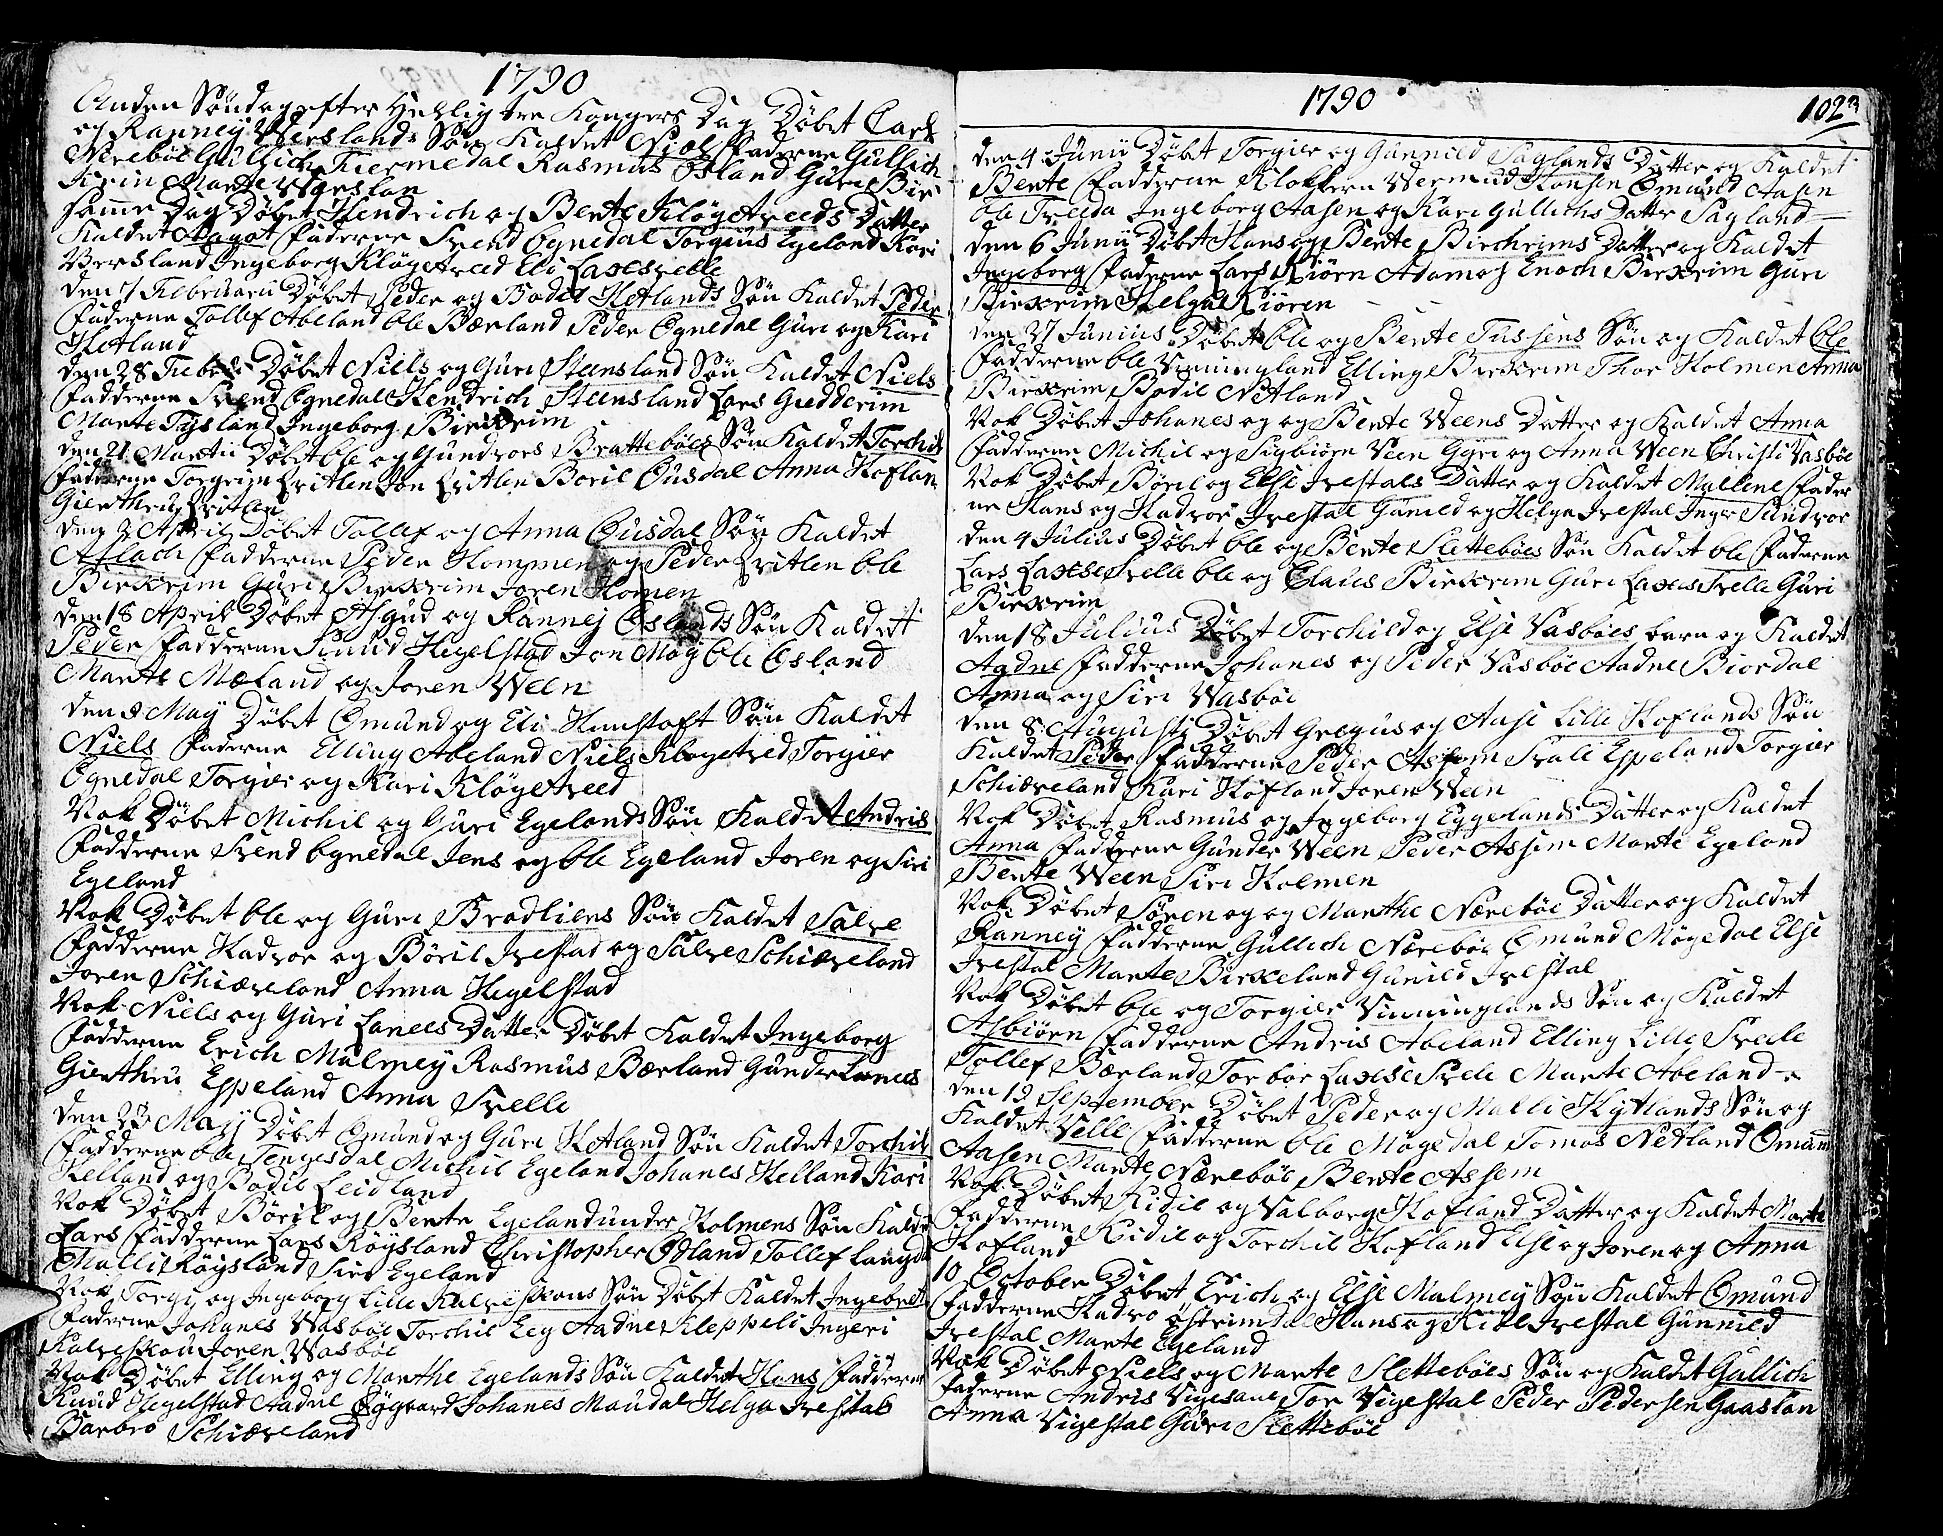 1790
Anden Søndag efter Hellig tre Kongers Dag Døbet Carl
og Ranney Wersland Søn Kaldet Niels Faderne Gullich
Nærebøe Gullich Kiermedal Rasmus Øsland Guri Bir
Marte Wærslan
samme Dag Døbet Hendrich og Bente Kløgetveeds Datter
Kaldet Aagot Faderne Svend Egnedal Torgius Egeland Kari
Versland Ingeborg Kløgetveed Eli Laxesvelle
den 7 Februarii Døbet Peder og Bodel Hetlands Søn Kaldet Peder
Faderne Tollef Abeland Ole Bærland Peder Egnedal Guri og Kari
Hetland
den 28 Febr Døbet Niels og Guri Steensland Søn Kaldet Niels
Fadderne Svend Egnedal Hendrich Steensland Lars Gudderim
Marte Tysland Ingeborg Birkrim
den 21 Martii Døbet Ole og Gundvors Brattebøes Søn Kaldet Torchil
Fadderne Torgrim Evitlen Jon Evitlen Boril Ousdal Anna Hoflan
Gierthru Evitlen
den 2 April Døbet Tollef og Anna Ousdal Søn Kaldet
Aslach Fadderne Peder Hommen og Peder Evitlen Ole
Birkrim Guri Birkrim Joren Homen
den 18 April Døbet Asgud og Rannej Øslands Søn Kaldet
Peder Fadderne Knud Hegelstad Jon Moy Ole Øsland
Marte Mæland og Joren Ween
den 8 May Døbet Omund og Eli Humstoft Søn Kaldet
Niels Faderne Elling Abeland Niels Kløgetved Torgier
Egnedal Torgier og Kari Kløgetveed
Nok Døbet Michil og Guri Egelands Søn Kaldet Andris
Fadderne Svend Egnedal Jens og Ole Egeland Joren og Siri
Egeland
Nok Døbet Ole og Guri Bradliens Søn Kaldet Salve
Fadderne Hadvor og Böril Ivestad og Salve Schiæveland
Joren Schiæveland Anna Hegelstad
Nok Niels og Guri Lanees Datter Døbet Kaldet Ingeborg
Fadderne Erich Malmey Rasmus Bærland Gunder Lanees
Gierthru Eppeland Anna Svelle
den 23 May Døbet Omund og Guri Hetland Søn Kaldet Torchil
Fadderne Ole Tengesdal Michil Egeland Johanes Helland Kari
Helland og Bodil Leidland
Nok Døbet Böril og Bente Egelandunder Holmens Søn Kaldet
Lars Fadderne Lars Röysland Christopher Ødland Tollef Langda
Malli Röysland Siri Egeland
Nok Torgy og Ingeborg Lille Kalveskous Søn Døbet Kaldet Ingebret
Faderne Johanes Wasbøe Torchil Eeg Aadne Kleppeli Ingeri
Kalveskou Joren Wasbøe
Nok Døbet Elling og Marthe Egelands Søn Kaldet Hans Fadderne
Knud Hegelstad Aadne Johanes Maudal Helga Ivestad
Barbro Schiæveland
1790 102
den 4 Junii Døbt Torgier og Gunnild Saglands Datter og Kaldet
Bente Fadderne Klokkern Wermund Hansen Omund Aasen
Ole Treeda Ingeborg Aasen og Kari Gullichs Datter Sagland
den 6 Junii Døbt Hans og Bente Birchrims Datter og Kaldet
Ingeborg Fadderne Lars Kiörn Adamog Enoch Birkrim Guri
Birkrim Helga Kiören
den 27 Junius Døbet Ole og Bente Tussens Søn og Kaldet Ole
Fadderne Ole Vinningland Elling Birkrim Thor Holmen Anna
Birkrim Bodil Netland
Nok Døbet Johanes og og Bente Weens Datter og Kaldet Anna
Fadderne Michil og Sigbiörn Veen Gyri og Anna Ween Christi Vasbøe
Nok Døbet Böril og Else Ivestals Datter og Kaldet Mallene Fader
ne Hans og Hadvor Ivestal Gunild og Helga Ivestal Inger Sundvor
den 4 Julius Døbet Ole og Bente Slettebøes Søn Kaldet Ole Faderne
Lars Laxesvelle Ole og Claus Birkrim Guri Laxesvelle Guri
Birkrim
den 18 Julius Døbet Torchild og Else Vasbøes barn og Kaldet
Aadne Fadderne Johanes og Peder Vasbøe Aadne Biordal
Anna og Siri Wasbøe
den 8 Augusti Døbet Gregus og Aase Lille Hoflands Søn
Kaldet Peder Fadderne Peder Assem Svali Eppeland Torgier
Schiæveland Kari Hofland Joren Ween
Nok Døbet Rasmus og Ingeborg Eygelands Datter og Kaldet
Anna Fadderne Gunder Ween Peder Assem Marte Egeland
Bente Ween Siri Holmen
Nok Døbet Søren og og Marthe Nærebøe Datter og Kaldet
Ranney Fadderne Gullich Nærebøe Omund Møgedal Else
Ivestal Marte Birkeland Gunild Ivestal
Nok Døbet Ole og Torgier Vinninglands Søn og Kaldet
Asbiørn Fadderne Andris Abeland Elling Lille Svele
Tollef Bærland Torbor Laxesvele Marte Abeland
den 19 September Døbet Peder og Malli Hytlands Søn og
Kaldet Velle Fadderne Ole Møgedal Tomas Netland Omun
Aasen Marte Nærebøe Bente Assem
Nok Døbet Kidil og Valborg Hofland Datter og Kaldet Marte
Fadderne Kidil og Torchil Hofland Else og Joren og Anna
Hofland
10 October Døbet Erich og Else Malmey Søn Kaldet Omund
Fadderne Hadvo Østrimdal Hans og Kiel Ivestal Gunnild
Ivestal Marte Egeland
Nok Døbet Niels og Marte Slettebøes Søn og Kaldet Gullich
Faderne Andris Vigesaae Tor Vigestal Peder Pedersen Gaaslan
Anna Vigestal Guri Slettebøe